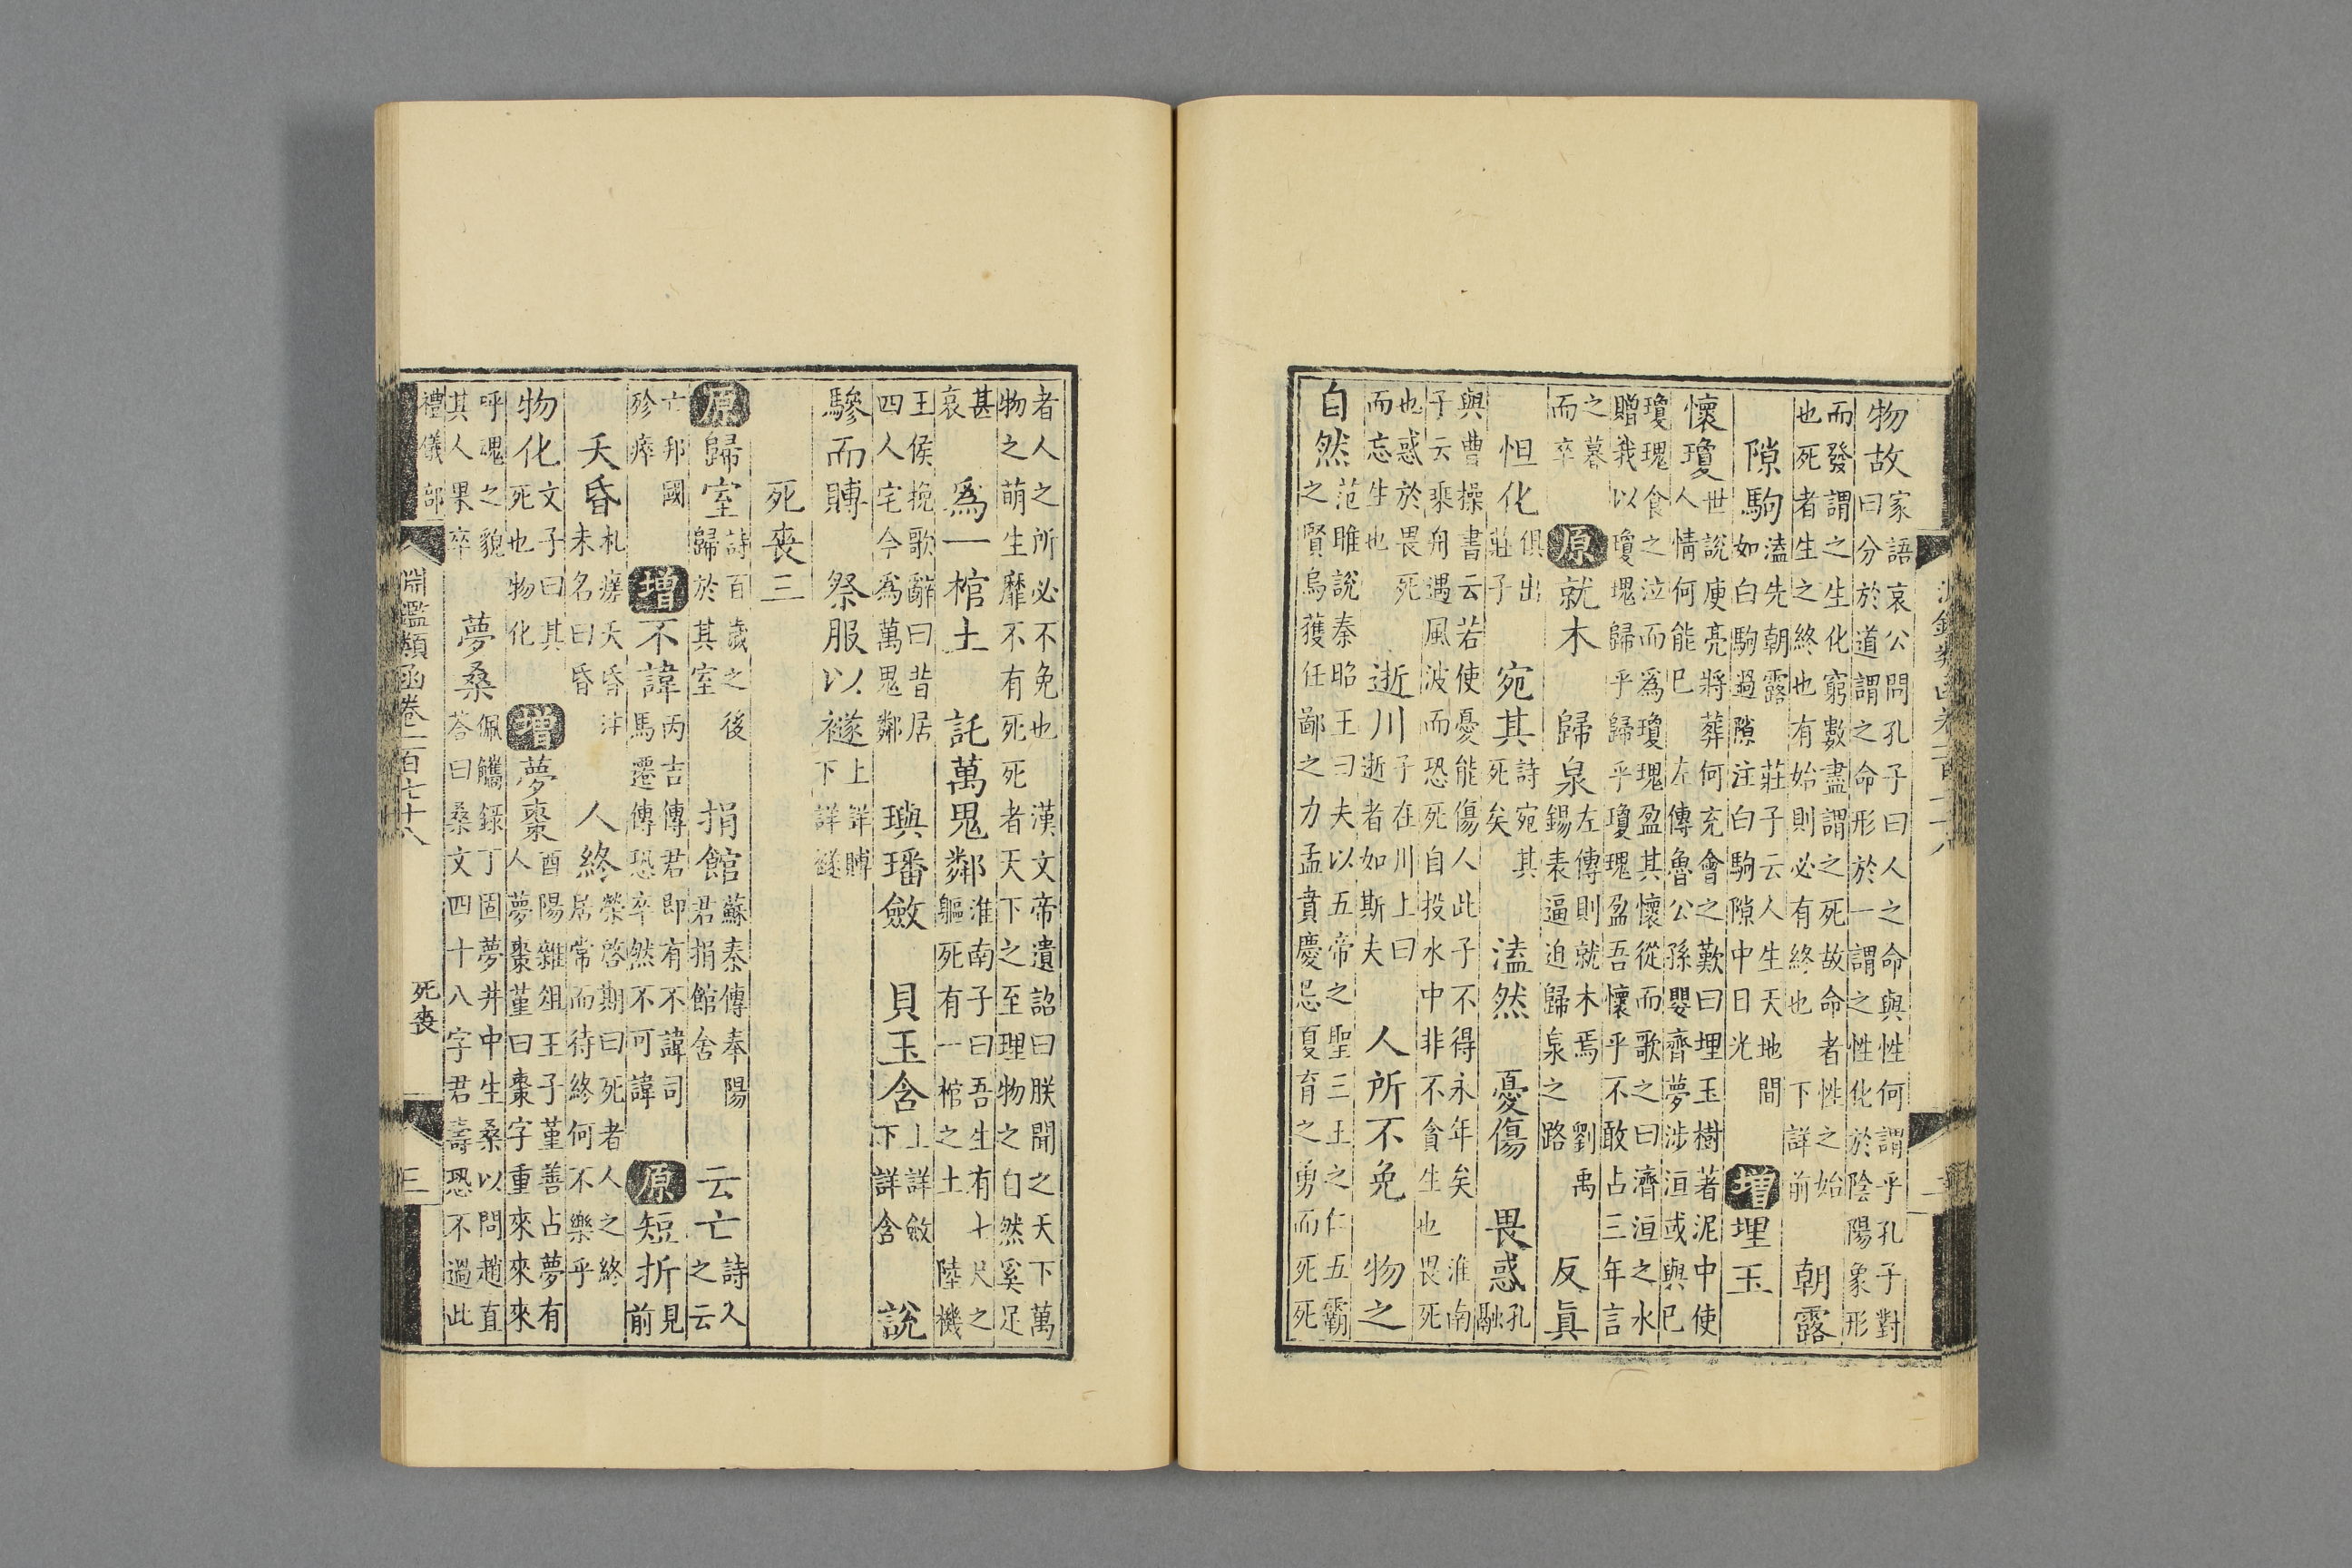 物故家語哀公問孔子曰人之命與性何謂乎孔子對
曰分於道謂之命形於一謂之性化於陰陽象形
而發謂之生化窮數盡謂之死故命者性之始
也死者生之終也有始則必有終也 下詳前 朝露
隙駒溘先朝露 莊子云人生天地間
如白駒過隙注白駒隙中日光 增埋玉
懷瓊世說庾亮將葬何充會之歎曰埋玉樹著泥中使
人情何能已 左傳魯公孫嬰齊夢涉洹或與已
瓊瑰食之泣而爲瓊瑰盈其懷從而歌之曰濟洹之水
贈我以瓊瑰歸乎歸乎瓊瑰盈吾懷乎不敢占三年言
之暮而卒 原就木 歸泉左傳則就木焉 劉禹錫表逼迫歸泉之路 反眞
怛化俱出莊子 宛其詩宛其死矣 溘然 憂傷 畏惑孔融
與曹操書云若使憂能傷人此子不得永年矣 淮南
子云乘舟遇風波而恐死自投水中非不貪生也畏死
也惑於畏死而忘生也 逝川子在川上曰逝者如斯夫 人所不免 物之
自然范雎說秦昭王曰夫以五帝之聖三王之仁五霸
之賢烏獲任鄙之力孟賁慶忌夏育之勇而死死
者人之所必不免也 漢文帝遺詔曰朕聞之天下萬
物之萌生靡不有死死者天下之至理物之自然奚足
甚哀 爲一棺土 託萬鬼鄰淮南子曰吾生有七尺之軀死有一棺之土 陸機
王侯挽歌辭曰昔居四人宅今爲萬鬼鄰 璵璠斂 貝玉含上詳斂下詳含 說
驂而賻 祭服以襚上詳賻下詳襚
死喪三
原歸室詩百歲之後歸於其室 捐館蘇秦傳奉陽君捐館舍 云亡詩人之云
亡邦國殄瘁 增不諱丙吉傳君即有不諱司馬遷傳恐卒然不可諱 原短折見前
夭昏札瘥夭昏注未名曰昏 人終榮啓期曰死者人之終居常而待終何不樂乎
物化文子曰其死也物化 增夢棗酉陽雜俎王子堇善占夢有人夢棗堇曰棗字重來來來
呼魂之貌其人果卒 夢桑佩觿錄丁固夢井中生桑以問趙直答曰桑文四十八字君壽恐不過此
禮儀部 淵鑑類函卷二百七十八 死喪 三